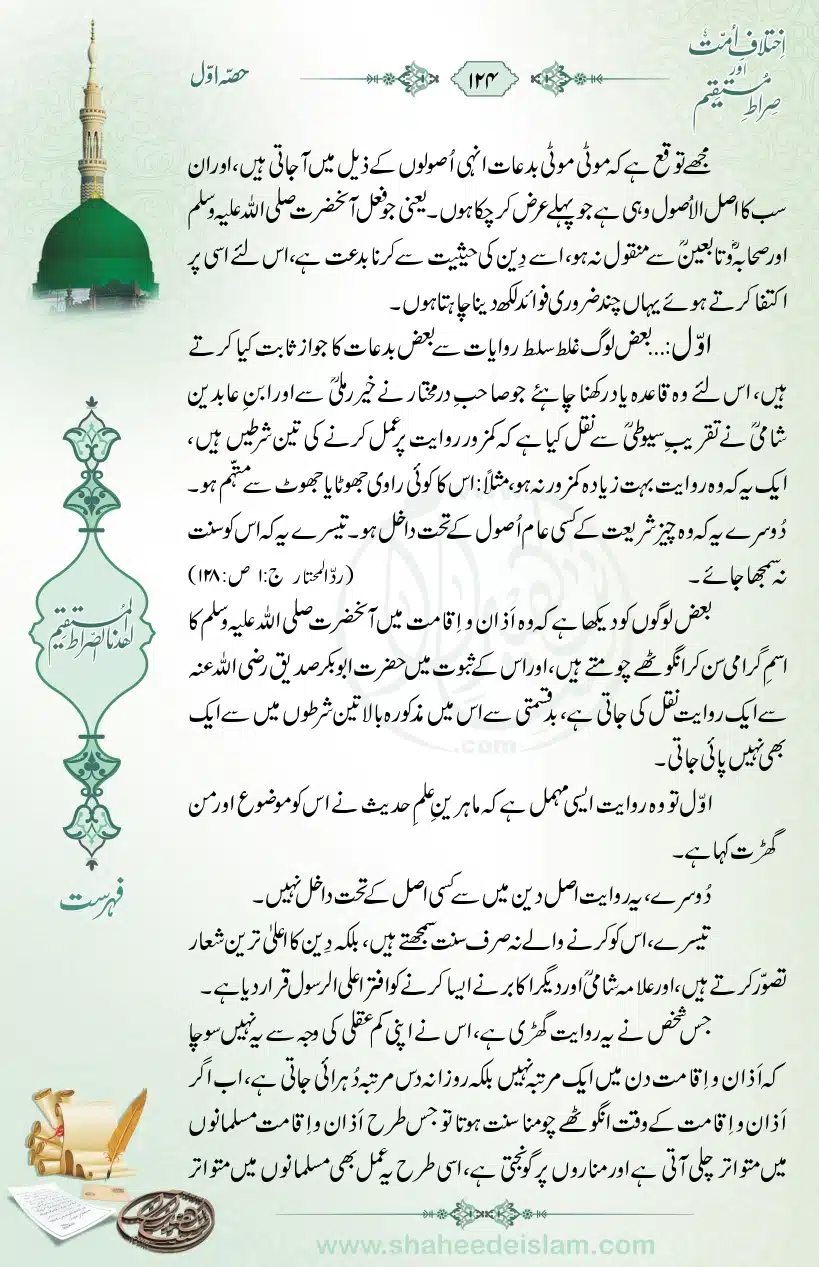 اِختلافِ اُمّت
اور
صراطِ مستقیم
۱۲۴
حصہ اوّل
مجھے توقع ہے کہ موٹی موٹی بدعات انہی اُصولوں کے ذیل میں آجاتی ہیں، اور ان
سب کا اصل الاُصول وہی ہے جو پہلے عرض کرچکا ہوں۔ یعنی جو فعل آنحضرت صلی اللہ علیہ وسلم
اور صحابہؓ و تابعینؒ سے منقول نہ ہو، اسے دِین کی حیثیت سے کرنا بدعت ہے، اس لئے اسی پر
اکتفا کرتے ہوئے یہاں چند ضروری فوائد لکھ دینا چاہتا ہوں۔
اوّل:... بعض لوگ غلط سلط روایات سے بعض بدعات کا جواز ثابت کیا کرتے
ہیں، اس لئے وہ قاعدہ یاد رکھنا چاہئے جو صاحبِ درمختار نے خیر رملیؒ سے اور ابنِ عابدین
شامیؒ نے تقریبِ سیوطیؒ سے نقل کیا ہے کہ کمزور روایت پر عمل کرنے کی تین شرطیں ہیں،
ایک یہ کہ وہ روایت بہت زیادہ کمزور نہ ہو، مثلاً: اس کا کوئی راوی جھوٹا یا جھوٹ سے متہم ہو۔
دُوسرے یہ کہ وہ چیز شریعت کے کسی عام اُصول کے تحت داخل ہو۔ تیسرے یہ کہ اس کو سنت
نہ سمجھا جائے۔ (ردّ المحتار ج:۱ ص:۱۲۸)
بعض لوگوں کو دیکھا ہے کہ وہ اَذان و اِقامت میں آنحضرت صلی اللہ علیہ وسلم کا
اسمِ گرامی سن کر انگوٹھے چومتے ہیں، اور اس کے ثبوت میں حضرت ابوبکر صدیق رضی اللہ عنہ
سے ایک روایت نقل کی جاتی ہے، بدقسمتی سے اس میں مذکورہ بالا تین شرطوں میں سے ایک
بھی نہیں پائی جاتی۔
اوّل تو وہ روایت ایسی مہمل ہے کہ ماہرینِ علمِ حدیث نے اس کو موضوع اور من
گھڑت کہا ہے۔
دُوسرے، یہ روایت اصل دین میں سے کسی اصل کے تحت داخل نہیں۔
تیسرے، اس کو کرنے والے نہ صرف سنت سمجھتے ہیں، بلکہ دِین کا اعلیٰ ترین شعار
تصوّر کرتے ہیں، اور علامہ شامیؒ اور دیگر اکابر نے ایسا کرنے کو افترا علی الرسول قرار دیا ہے۔
جس شخص نے یہ روایت گھڑی ہے، اس نے اپنی کم عقلی کی وجہ سے یہ نہیں سوچا
کہ اَذان و اِقامت دن میں ایک مرتبہ نہیں بلکہ روزانہ دس مرتبہ دُہرائی جاتی ہے، اب اگر
اَذان و اِقامت کے وقت انگوٹھے چومنا سنت ہوتا تو جس طرح اَذان و اِقامت مسلمانوں
میں متواتر چلی آتی ہے اور مناروں پر گونجتی ہے، اسی طرح یہ عمل بھی مسلمانوں میں متواتر
اھدنا الصراط المستقیم
فہرست
www.shaheedeislam.com